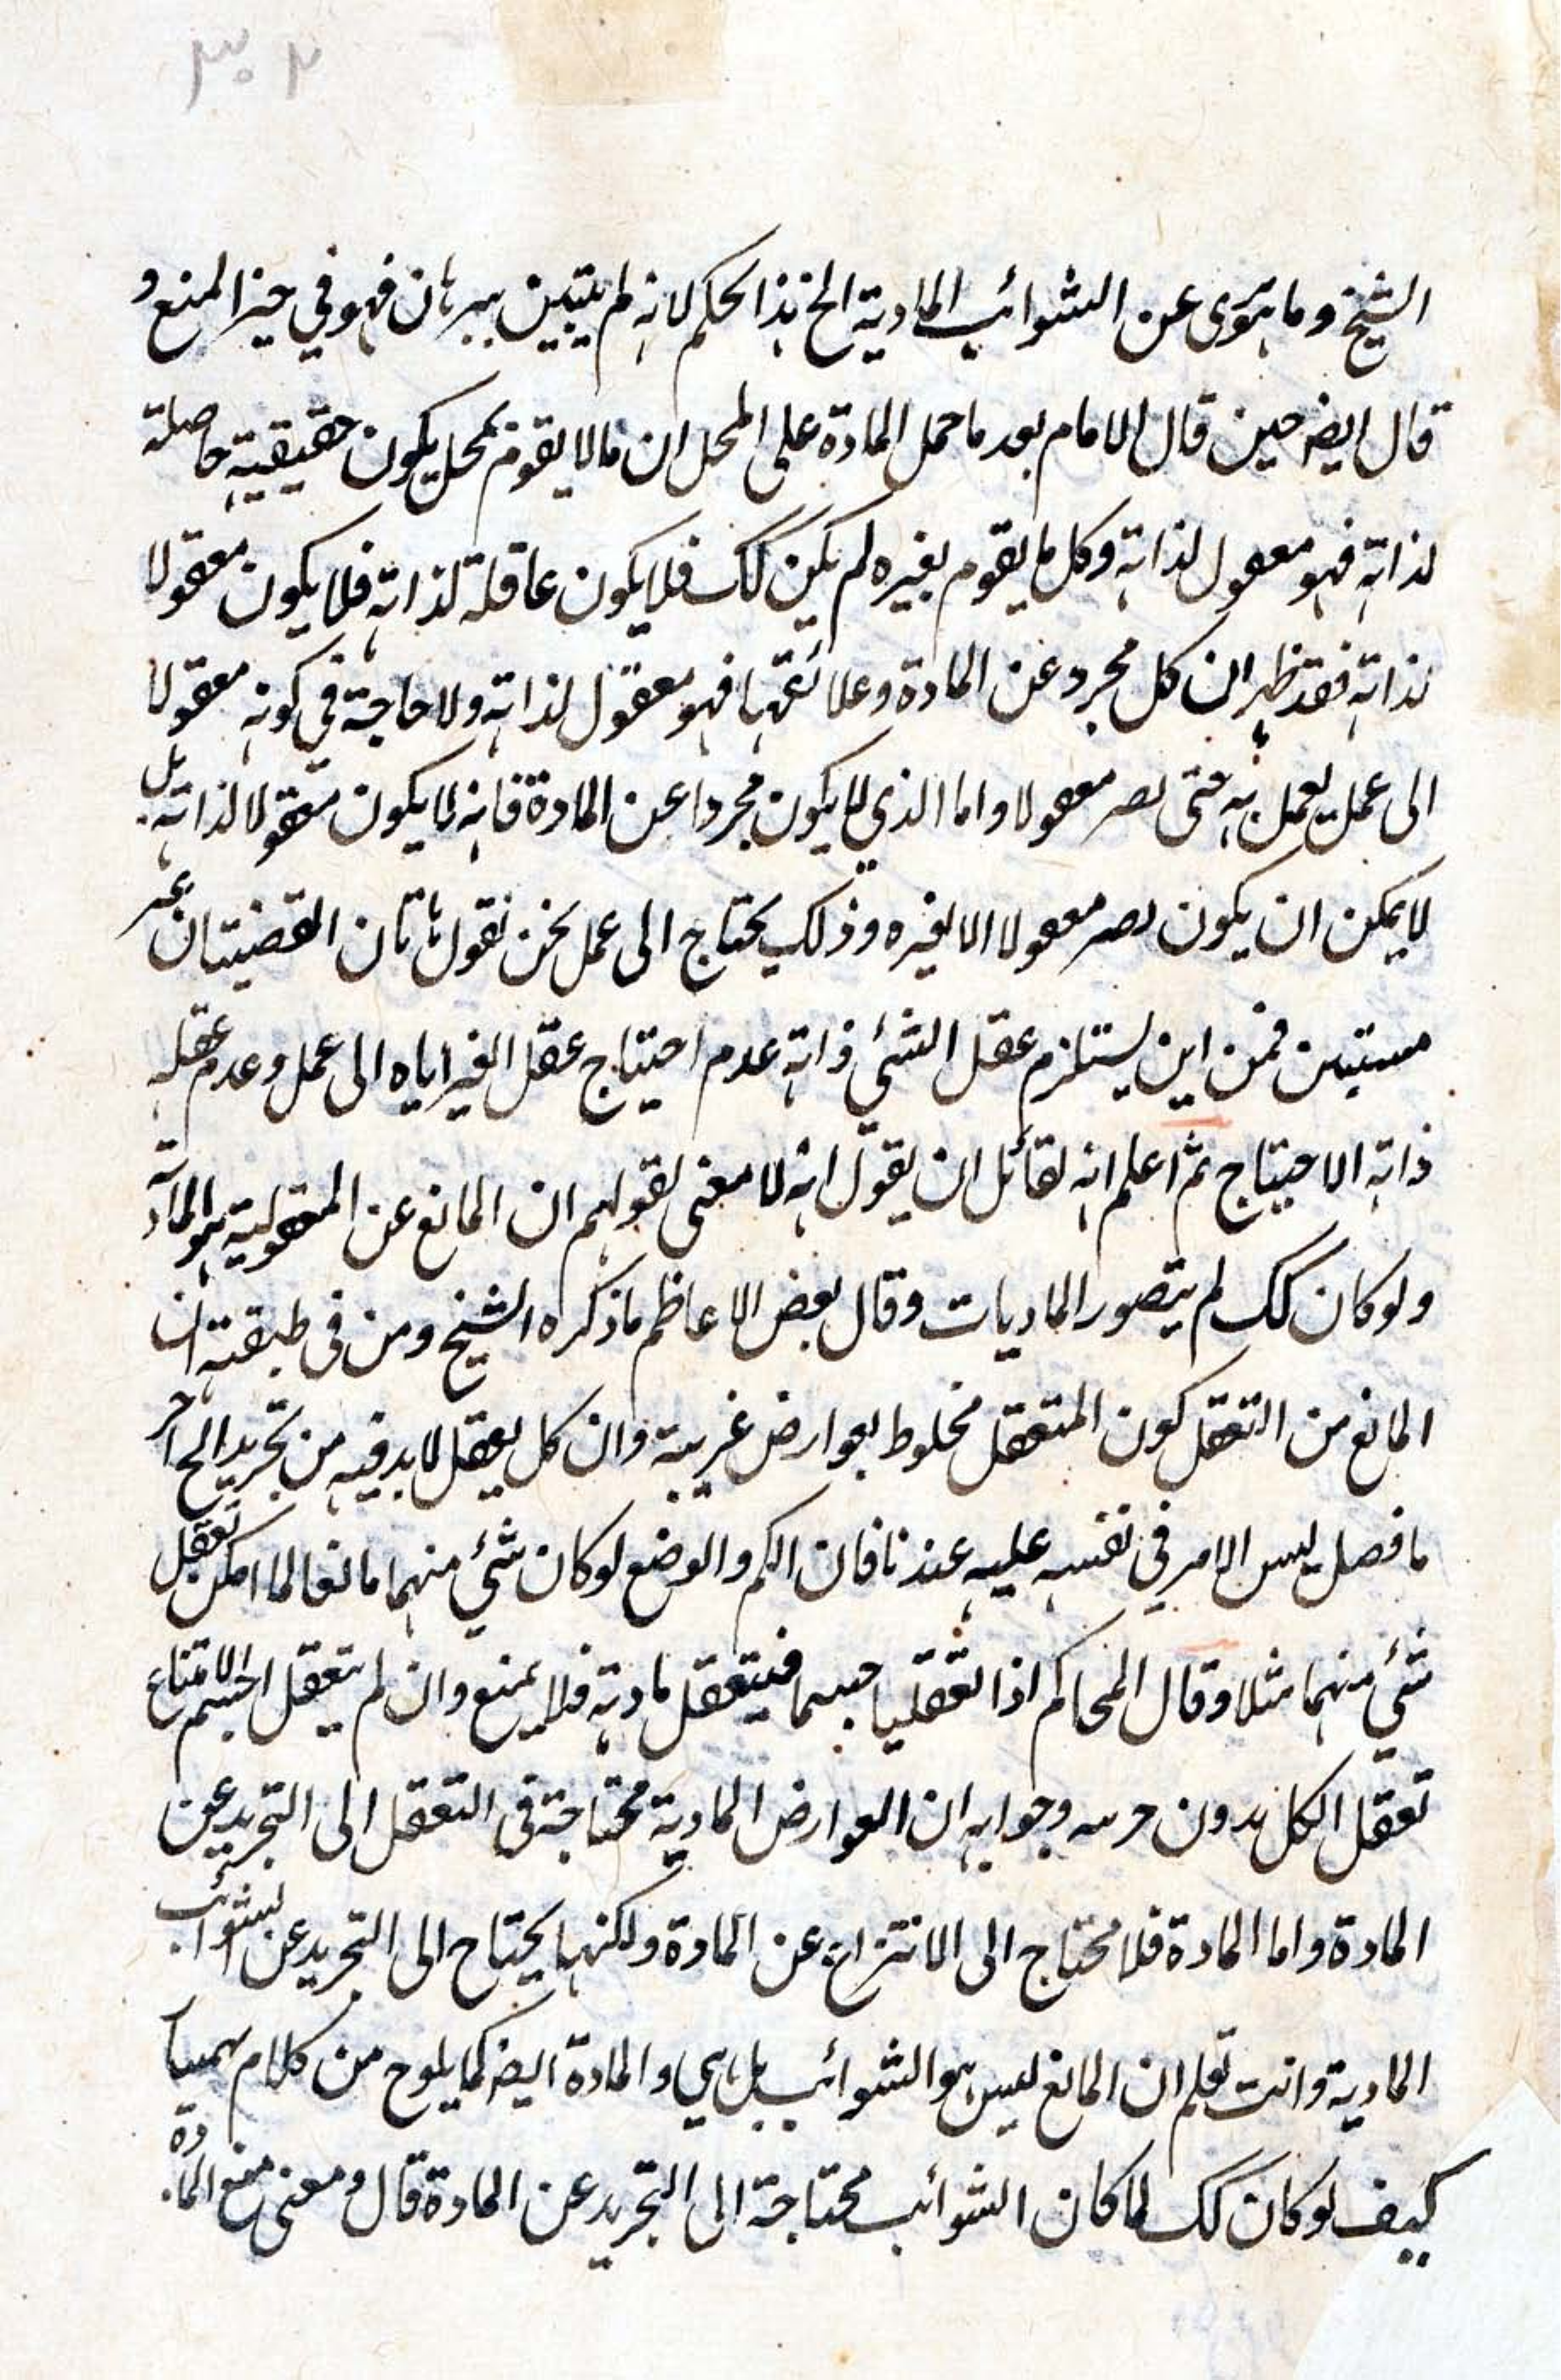 ٣٠٢
الشيخ وما هو برى عن الشوائب المادية الخ هذا الحكم لانه لم يتبين ببرهان فهو في حيز المنع و
قال ايضه حين قال الامام بعد ما حمل المادة على المحل ان مالا يقوم بمحل يكون حقيقيته حاصلة
لذاته فهو معقول لذاته وكل ما يقوم بغيره لم يكن كك فلا يكون عاقلة لذاته فلا يكون معقولا
لذاته فقد ظهر ان كل مجرد عن المادة وعلائقها فهو معقول لذاته ولا حاجة في كونه معقولا
الى عمل يعمل به حتى يصير معقولا واما الذي لا يكون مجردا عن المادة فانه لا يكون معقولا لذاته بل
لا يمكن ان يكون يصير معقولا الا لغيره وذلك يحتاج الى عمل نحن نقول هاتان القضيتان غير
مستبين فمن اين يستلزم عقل الشئي ذاته عدم احتياج عقل الغير اياه الى عمل وعدم عقله
ذاته الاحتياج ثم اعلم انه لقائل ان يقول انه لا معنى لقولهم ان المانع عن المعقولية هو المادة
ولو كان كك لم يتصور الماديات وقال بعض الاعاظم ما ذكره الشيخ ومن في طبقته ان
المانع من التعقل كون المتعقل مخلوط بعوارض غريبة وان كل يعقل لا بد فيه من تجريد الخ آخر
ما فصل ليس الامر في نفسه عليه عندنا فان الكم والوضع لو كان شئي منهما مانعا لما امكن تعقل
شئي منهما مثلا وقال المحاكم اذا تعقليا جسما فيتعقل مادته فلا يمنع وان لم يتعقل الجسم لامتناع
تعقل الكل بدون جزئه وجوابه ان العوارض المادية محتاجة في التعقل الى التجريد عن
المادة واما المادة فلا محتاج الى الانتزاع عن المادة ولكنها يحتاج الى التجريد عن الشوائب
المادية وانت تعلم ان المانع ليس هو الشوائب بل هي والمادة ايضه كما يلوح من كلام بهمنيار
كيف لو كان كك لما كان الشوائب محتاجة الى التجريد عن المادة قال ومعنى منع المادة